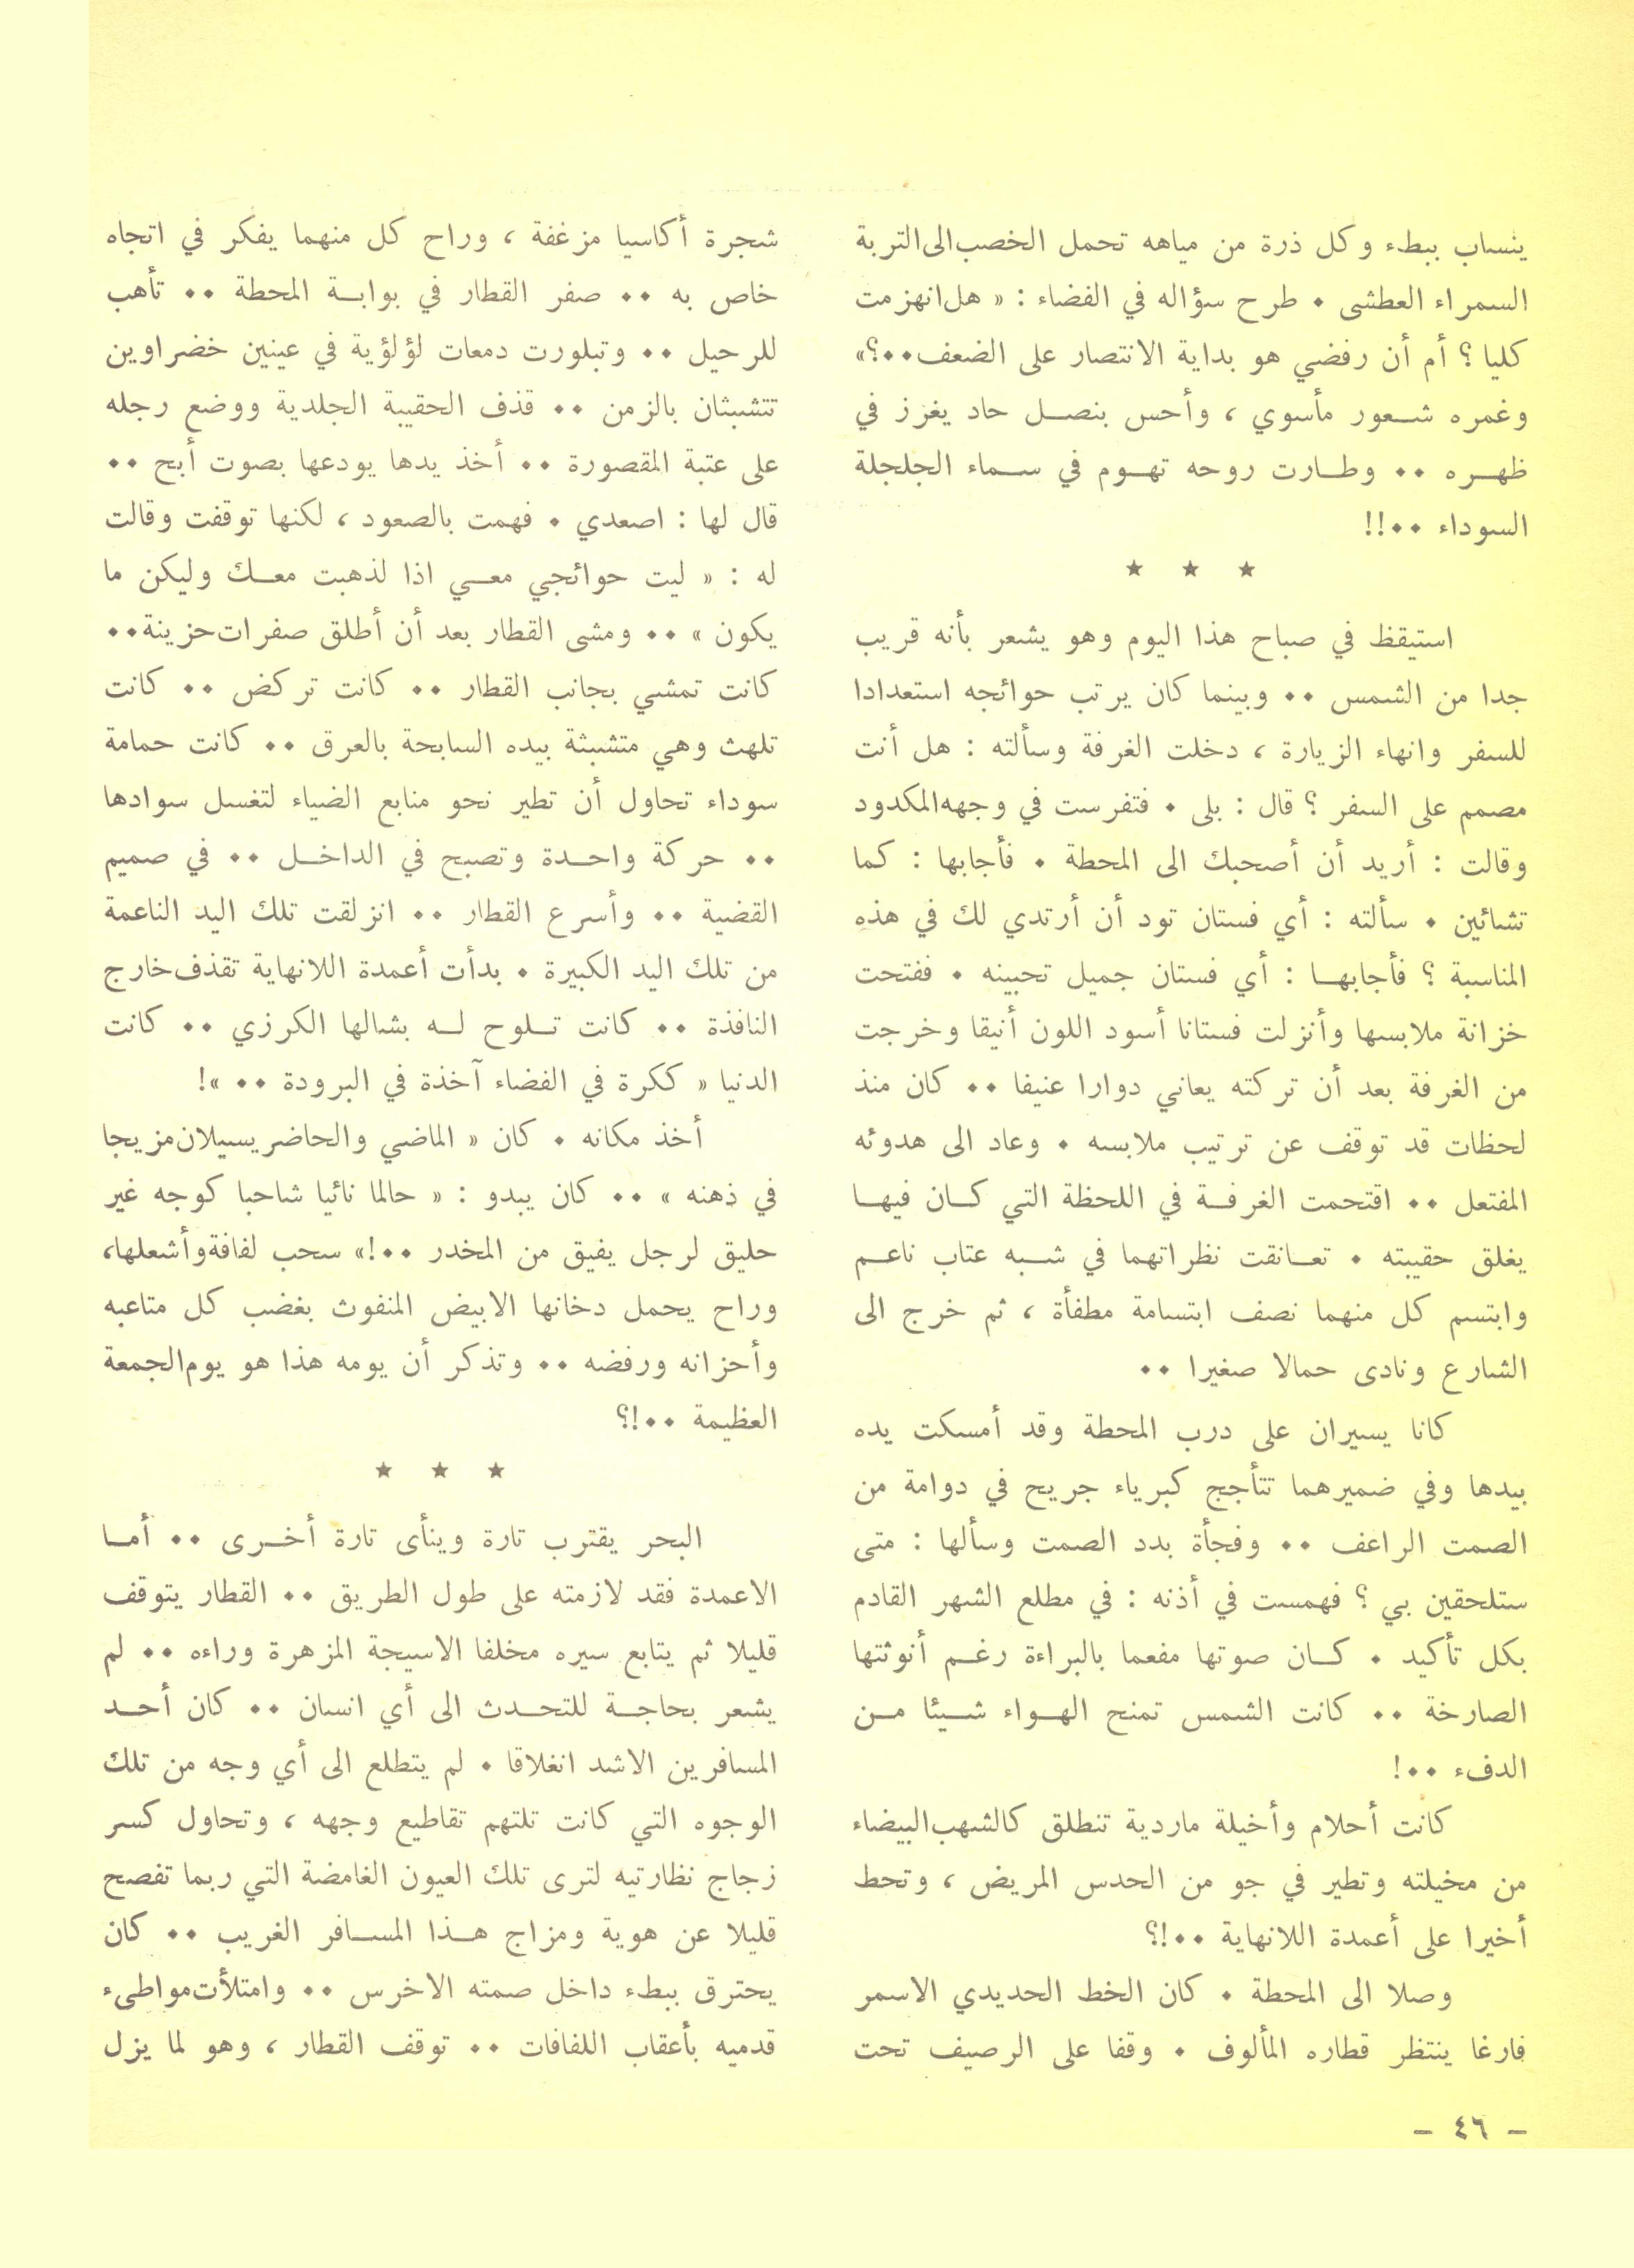 ينساب ببطء وكل ذرة من مياهه تحمل الخصب الى التربة
السمراء العطشى . طرح سؤاله في الفضاء : « هل انهزمت
كليا ؟ أم أن رفضي هو بداية الانتصار على الضعف..؟»
وغمره شعور مأسوي ، وأحس بنصل حاد يغرز في
ظهره .. وطارت روحه تهوم في سماء الجلجلة
السوداء ..!!
★ ★ ★
استيقظ في صباح هذا اليوم وهو يشعر بأنه قريب
جدا من الشمس .. وبينما كان يرتب حوائجه استعدادا
للسفر وانهاء الزيارة ، دخلت الغرفة وسألته : هل أنت
مصمم على السفر ؟ قال : بلى . فتفرست في وجهه المكدود
وقالت : أريد أن أصحبك الى المحطة . فأجابها : كما
تشائين . سألته : أي فستان تود أن أرتدي لك في هذه
المناسبة ؟ فأجابها : أي فستان جميل تحبينه . ففتحت
خزانة ملابسها وأنزلت فستانا أسود اللون أنيقا وخرجت
من الغرفة بعد أن تركته يعاني دوارا عنيفا .. كان منذ
لحظات قد توقف عن ترتيب ملابسه . وعاد الى هدوئه
المفتعل .. اقتحمت الغرفة في اللحظة التي كان فيها
يغلق حقيبته . تعانقت نظراتهما في شبه عتاب ناعم
وابتسم كل منهما نصف ابتسامة مطفأة ، ثم خرج الى
الشارع ونادى حمالا صغيرا ..
كانا يسيران على درب المحطة وقد أمسكت يده
بيدها وفي ضميرهما تتأجج كبرياء جريح في دوامة من
الصمت الراعف .. وفجأة بدد الصمت وسألها : متى
ستلحقين بي ؟ فهمست في أذنه : في مطلع الشهر القادم
بكل تأكيد . كان صوتها مفعما بالبراءة رغم أنوثتها
الصارخة .. كانت الشمس تمنح الهواء شيئا من
الدفء ..!
كانت أحلام وأخيلة ماردية تنطلق كالشهب البيضاء
من مخيلته وتطير في جو من الحدس المريض ، وتحط
أخيرا على أعمدة اللانهاية ..!؟
وصلا الى المحطة . كان الخط الحديدي الاسمر
فارغا ينتظر قطاره المألوف . وقفا على الرصيف تحت
شجرة أكاسيا مزغفة ، وراح كل منهما يفكر في اتجاه
خاص به .. صفر القطار في بوابة المحطة .. تأهب
للرحيل .. وتبلورت دمعات لؤلؤية في عينين خضراوين
تتشبثان بالزمن .. قذف الحقيبة الجلدية ووضع رجله
على عتبة المقصورة .. أخذ يدها يودعها بصوت أبح ..
قال لها : اصعدي . فهمت بالصعود ، لكنها توقفت وقالت
له : « ليت حوائجي معي اذا لذهبت معك وليكن ما
يكون » .. ومشى القطار بعد أن أطلق صفرات حزينة..
كانت تمشي بجانب القطار .. كانت تركض .. كانت
تلهث وهي متشبثة بيده السابحة بالعرق .. كانت حمامة
سوداء تحاول أن تطير نحو منابع الضياء لتغسل سوادها
.. حركة واحدة وتصبح في الداخل .. في صميم
القضية .. وأسرع القطار .. انزلقت تلك اليد الناعمة
من تلك اليد الكبيرة . بدأت أعمدة اللانهاية تقذف خارج
النافذة .. كانت تلوح له بشالها الكرزي .. كانت
الدنيا « ككرة في الفضاء آخذة في البرودة .. »!
أخذ مكانه . كان « الماضي والحاضر يسيلان مزيجا
في ذهنه » .. كان يبدو : « حالما نائيا شاحبا كوجه غير
حليق لرجل يفيق من المخدر ..!» سحب لفافة وأشعلها،
وراح يحمل دخانها الابيض المنفوث بغضب كل متاعبه
وأحزانه ورفضه .. وتذكر أن يومه هذا هو يوم الجمعة
العظيمة ..!؟
★ ★ ★
البحر يقترب تارة وينأى تارة أخرى .. أما
الاعمدة فقد لازمته على طول الطريق .. القطار يتوقف
قليلا ثم يتابع سيره مخلفا الاسيجة المزهرة وراءه .. لم
يشعر بحاجة للتحدث الى أي انسان .. كان أحد
المسافرين الاشد انغلاقا . لم يتطلع الى أي وجه من تلك
الوجوه التي كانت تلتهم تقاطيع وجهه ، وتحاول كسر
زجاج نظارتيه لترى تلك العيون الغامضة التي ربما تفصح
قليلا عن هوية ومزاج هذا المسافر الغريب .. كان
يحترق ببطء داخل صمته الاخرس .. وامتلأت مواطىء
قدميه بأعقاب اللفافات .. توقف القطار ، وهو لما يزل
– ٤٦ –